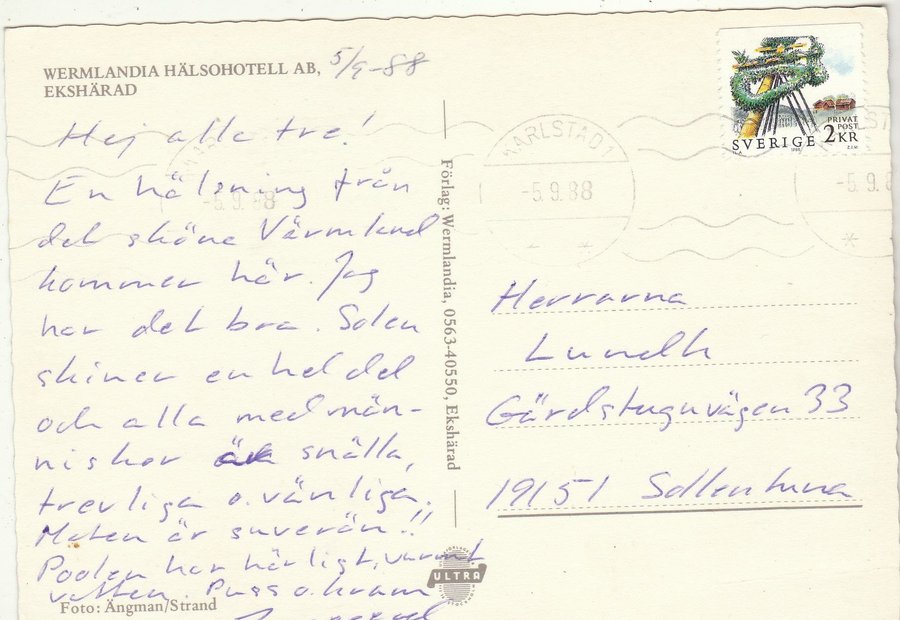 WERMLANDIA HÄLSOHOTELL AB,
EKSHÄRAD
5/9-88
Hej alla tre!
En hälsning från
det sköna Värmland
kommer här. Jag
har det bra. Solen
skiner en hel del
och alla medmän-
niskor är snälla,
trevliga o. vänliga.
Maten är suverän!!
Poolen har härligt, varmt
vatten. Puss o. kram
Foto: Ängman/Strand
Förlag: Wermlandia, 0563-40550, Ekshärad
ULTRA
PRIVAT
POST
SVERIGE 2KR
KARLSTAD 1
-5.9.88
-5.9.88
-5.9.8
Herrarna
Lundh
Gärdstuguvägen 33
19151 Sollentuna